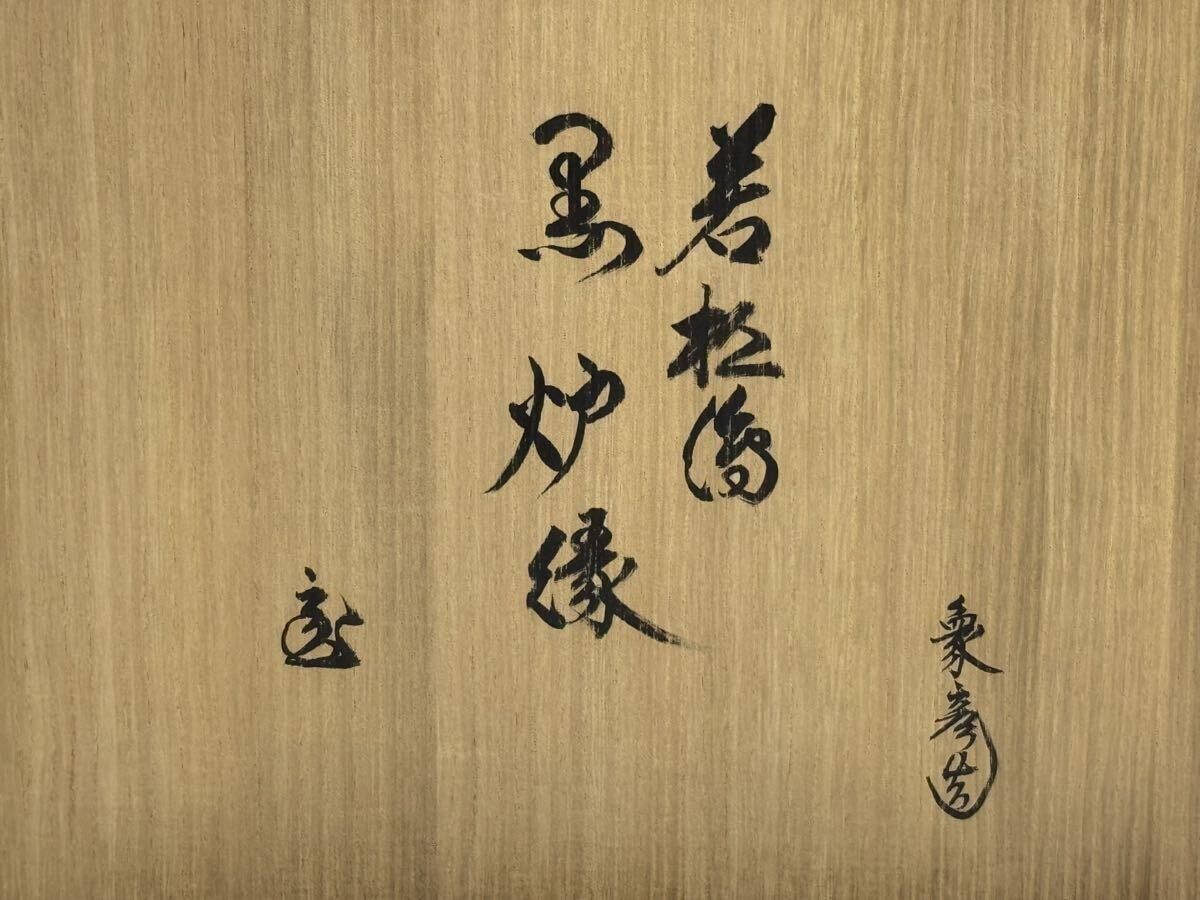 象彦造
若松
黒炉縁